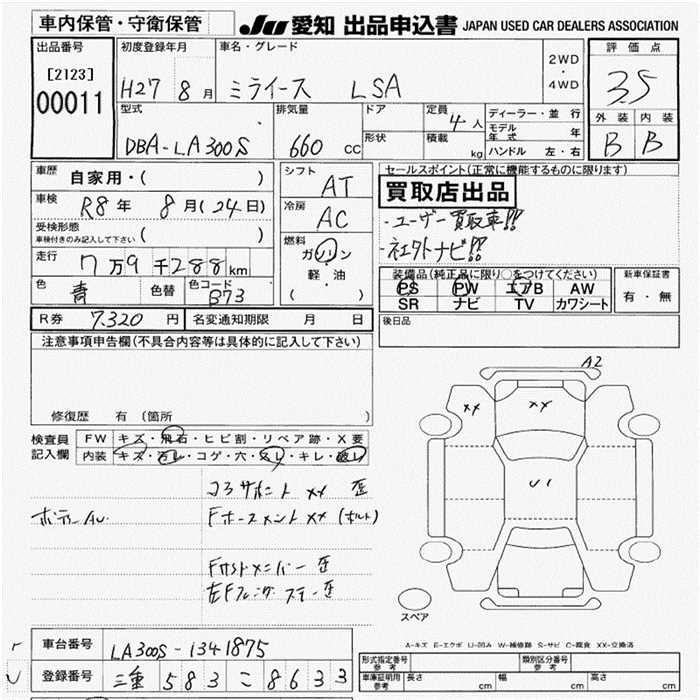 車内保管・守衛保管
JU 愛知 出品申込書 JAPAN USED CAR DEALERS ASSOCIATION
出品番号
[2123]
00011
初度登録年月
H27 8月
車名・グレード
ミライース LSA
2WD
・
4WD
評価点
3.5
外装 内装
B B
型式
DBA-LA300S
排気量
660 cc
ドア
形状
定員
4人
積載
kg
ディーラー・並行
モデル年式 年
ハンドル 左・右
車歴 自家用・( )
車検 R8年 8月(24日)
受検形態
車検付きのみ記入して下さい ( )
走行 7万9千288km
色 青 色替 色コード B73
シフト
AT
冷房
AC
燃料
ガソリン
・
軽油
( )
セールスポイント(正常に機能するものに限ります)
買取店出品
・ユーザー買取車!!
・社外ナビ!!
装備品(純正品に限り○をつけてください)
PS PW エアB AW
SR ナビ TV カワシート
新車保証書
有・無
R券 7,320円 名変通知期限 月 日
後日品
注意事項申告欄(不具合内容等は具体的に記入して下さい)
修復歴 有 (箇所
検査員
記入欄
FW キズ・飛石・ヒビ割・リペア跡・X要
内装 キズ・ヨレ・コゲ・穴・スレ・キレ・破レ
コアサポート XX 歪
ボデーAU.
Fホースメント XX (ボルト)
Fサイドメンバー 歪
左Fフェンダ ステー歪
A2
XX
XX
U1
スペア
A-キズ E-エクボ U-凹み W-補修跡 S-サビ C-腐食 XX-交換済
車台番号 LA300S-1341875
登録番号 三重 583 こ 8633
形式指定番号
参考
類別区分番号
参考
車庫証明用
参考
長さ cm 幅 cm 高さ cm